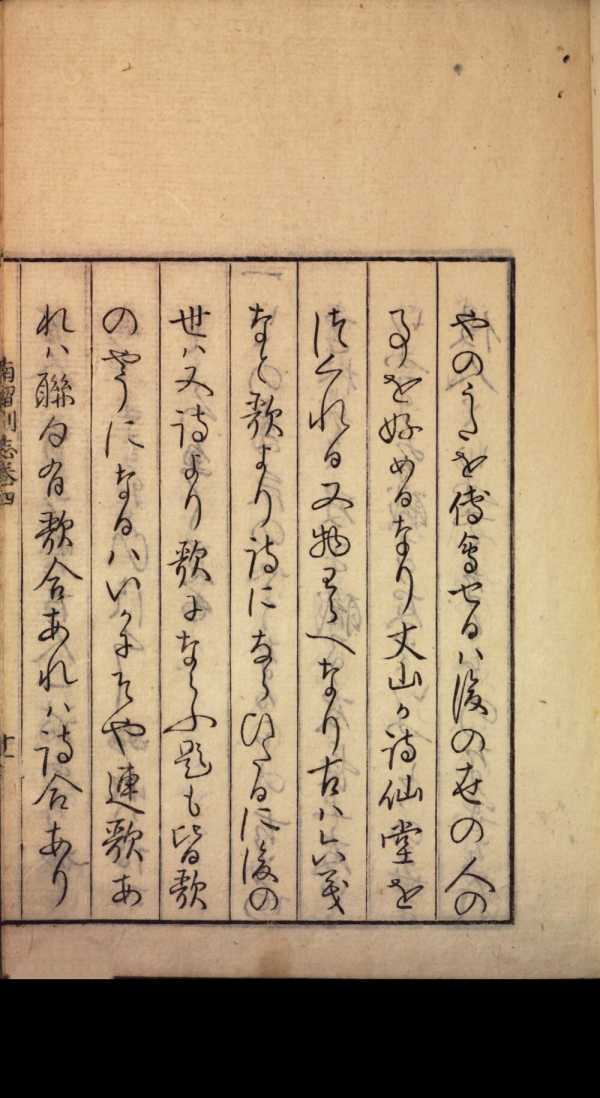 やのうたを傅會せるハ後の世の人の
事を好めるなり丈山か詩仙堂を
つくれる又物わらへなり古ハ六義
なと歌より詩にならひたるに後の
世ハ又詩より歌にならふ題も皆歌
のやうになるハいかにそや連歌あ
れハ聯句有歌合あれハ詩合あり
南留別志巻四
十一